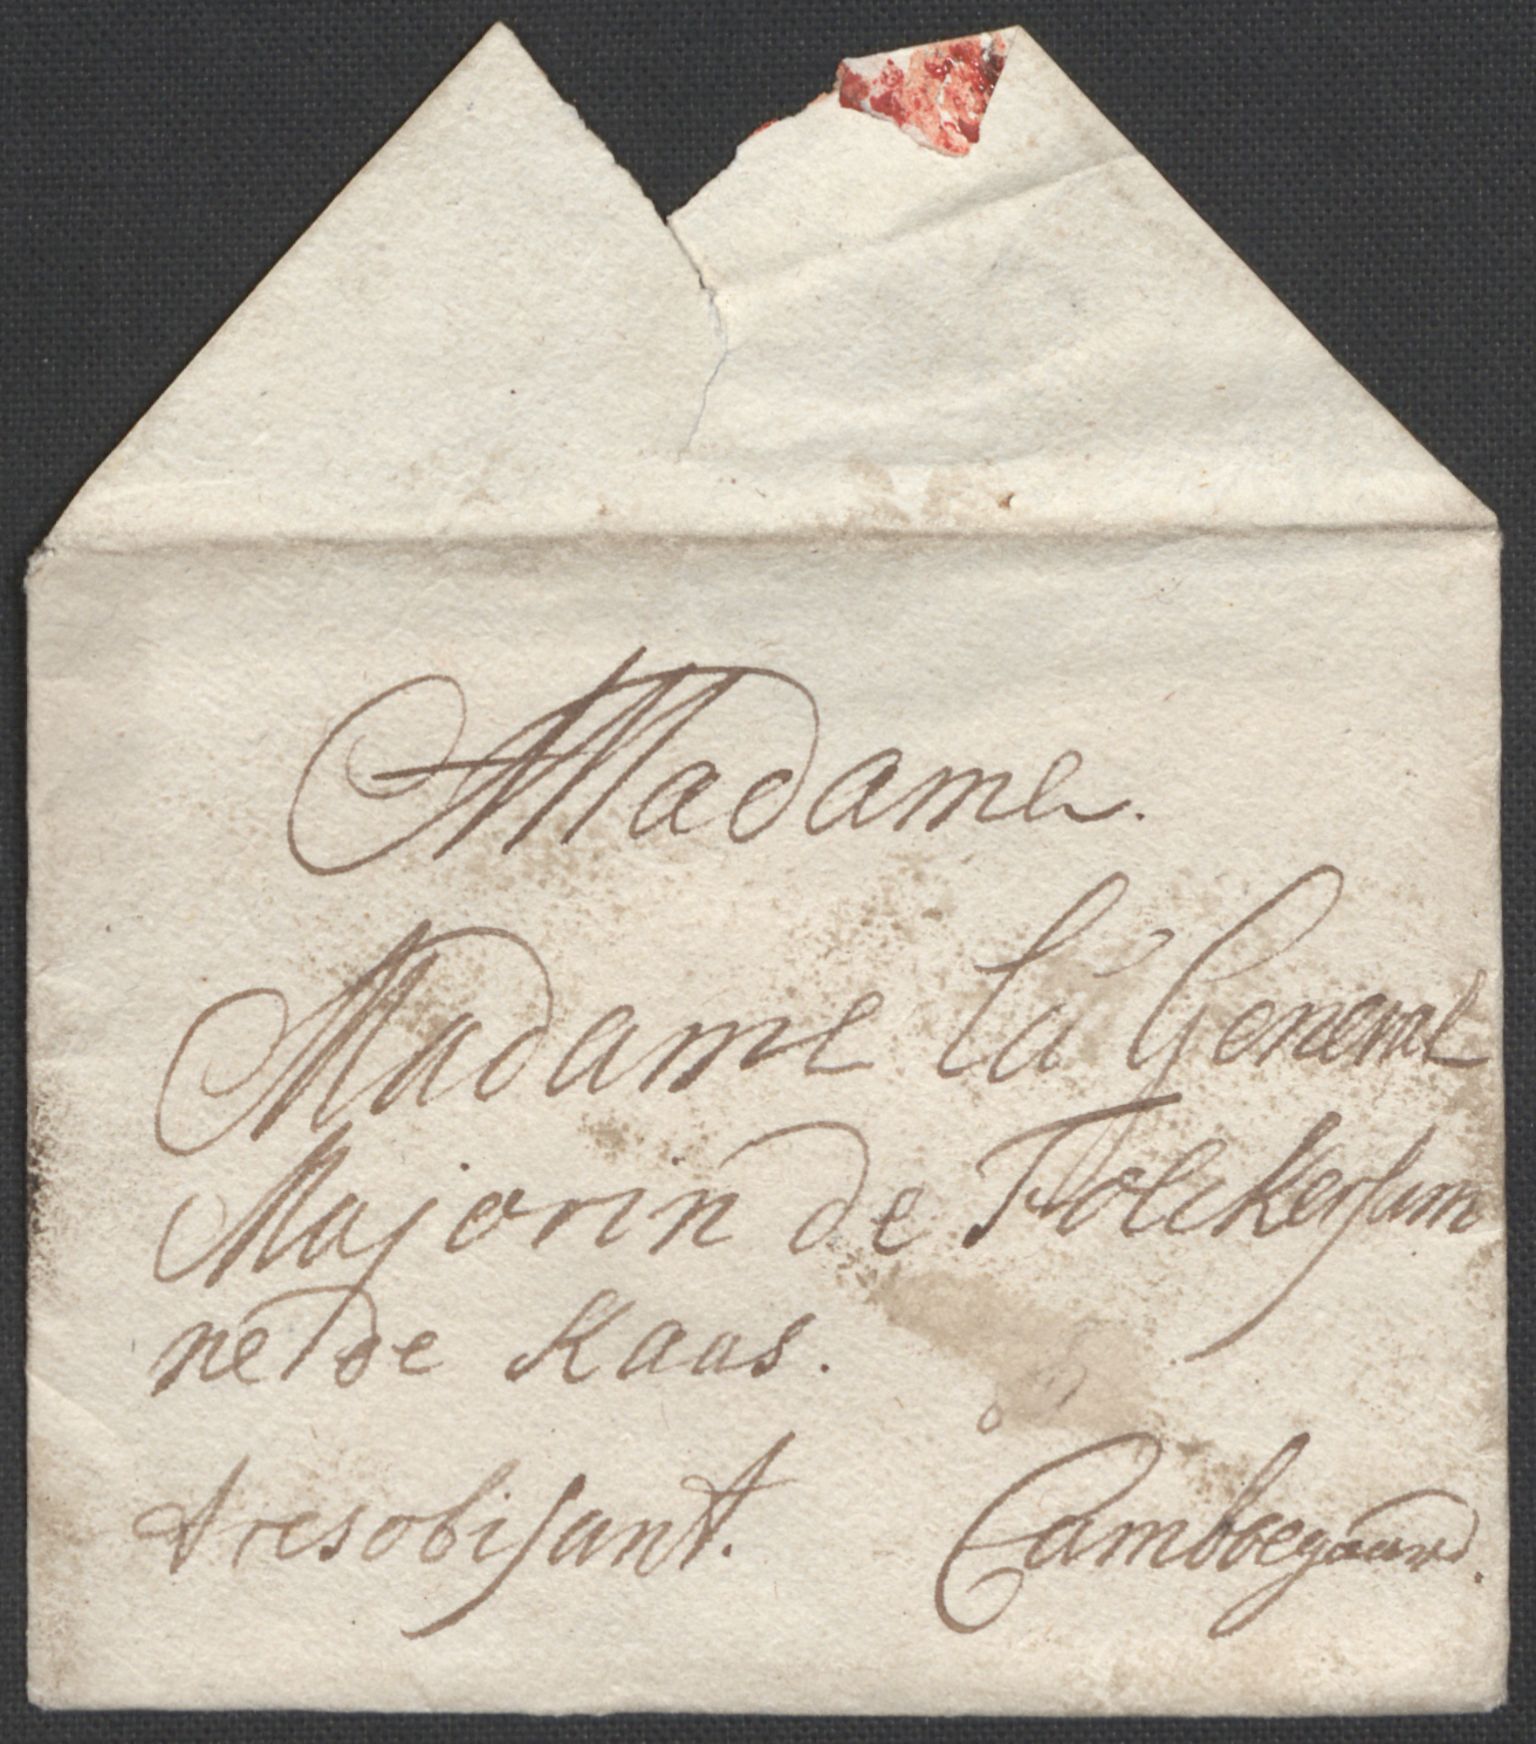 Madame.
Madame la General
Majorin de Folckersam
ne de Kaas.
tresobisant. Cambbegaard.